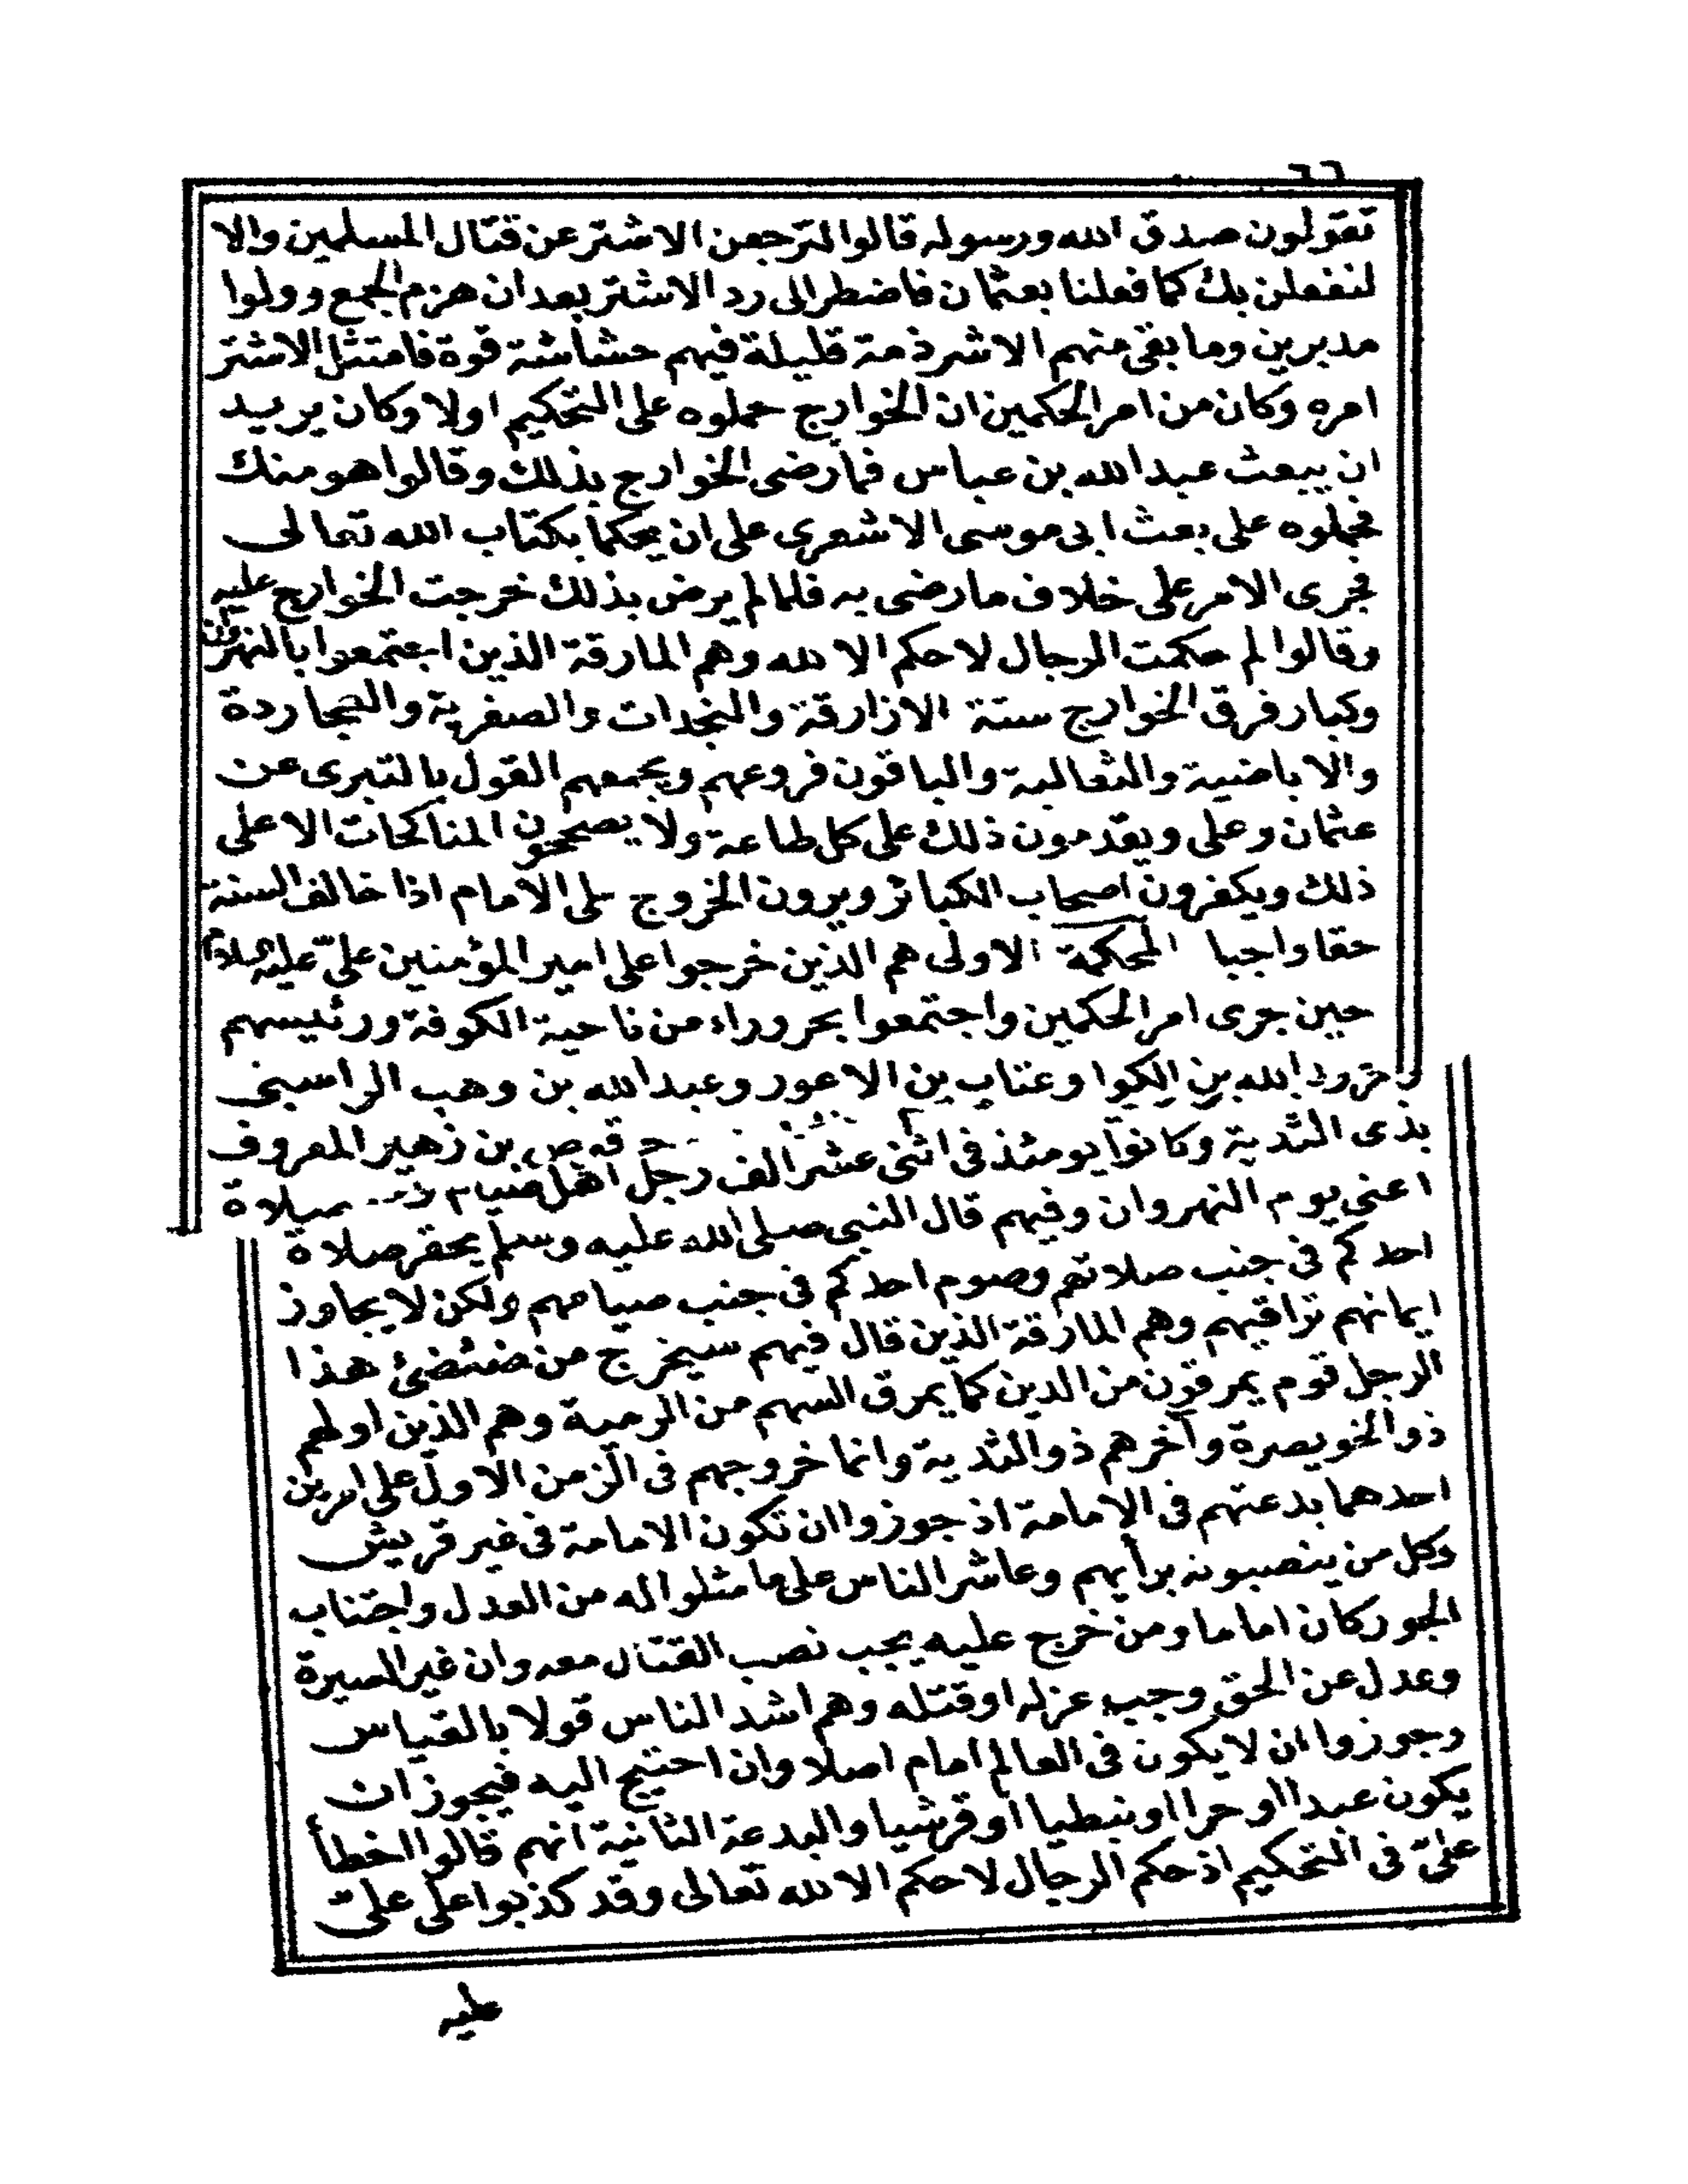 ٦٦
تقولون صدق الله ورسوله قالوا لترجعن الاشتر عن قتال المسلمين والا
لنفعلن بك كما فعلنا بعثمان فاضطر الى رد الاشتر بعد ان هزم الجمع وولوا
مدبرين وما بقى منهم الا شرذمة قليلة فيهم حشاشة قوة فامتثل الاشتر
امره وكان من امر الحكمين ان الخوارج حملوه على التحكيم اولا وكان يريد
ان يبعث عبد الله بن عباس فما رضى الخوارج بذلك وقالوا هو منك
فحملوه على بعث ابى موسى الاشعرى على ان يحكما بكتاب الله تعالى
فجرى الامر على خلاف ما رضى به فلما لم يرض بذلك خرجت الخوارج عليه
وقالوا لم حكمت الرجال لا حكم الا لله وهم المارقة الذين اجتمعوا بالنهروان
وكبار فرق الخوارج ستة الازارقة والنجدات والصفرية والعجاردة
والاباضية والثعالبة والباقون فروعهم ويجمعهم القول بالتبرى عن
عثمان وعلى ويقدمون ذلك على كل طاعة ولا يصححون المناكحات الا على
ذلك ويكفرون اصحاب الكبائر ويرون الخروج على الامام اذا خالف السنة
حقا واجبا المحكمة الاولى هم الذين خرجوا على امير المؤمنين علىّ عليه السلام
حين جرى امر الحكمين واجتمعوا بحروراء من ناحية الكوفة ورئيسهم
الله بن الكوا وعتاب بن الاعور وعبد الله بن وهب الراسبى
حرقوص بن زهير المعروف
بذى الثدية وكانوا يومئذ فى اثنى عشر الف رجل اهل صيام صلاة
اعنى يوم النهروان وفيهم قال النبى صلى الله عليه وسلم يحقر صلاة
احدكم فى جنب صلاتهم وصوم احدكم فى جنب صيامهم ولكن لا يجاوز
ايمانهم تراقيهم وهم المارقة الذين قال فيهم سيخرج من ضئضئ هذا
الرجل قوم يمرقون من الدين كما يمرق السهم من الرمية وهم الذين اولهم
ذو الخويصرة وآخرهم ذو الثدية وانما خروجهم فى الزمن الاول على امرين
احدهما بدعتهم فى الامامة اذ جوزوا ان تكون الامامة فى غير قريش
وكل من ينصبونه برأيهم وعاشر الناس على ما مثلوا له من العدل واجتناب
الجور كان اماما ومن خرج عليه يجب نصب القتال معه وان غير السيرة
وعدل عن الحق وجب عزله او قتله وهم اشد الناس قولا بالقياس
وجوزوا ان لا يكون فى العالم امام اصلا وان احتيج اليه فيجوز ان
يكون عبدا او حرا او نبطيا او قرشيا والبدعة الثانية انهم قالوا اخطأ
علىّ فى التحكيم اذ حكم الرجال لا حكم الا لله تعالى وقد كذبوا على علىّ
عليه